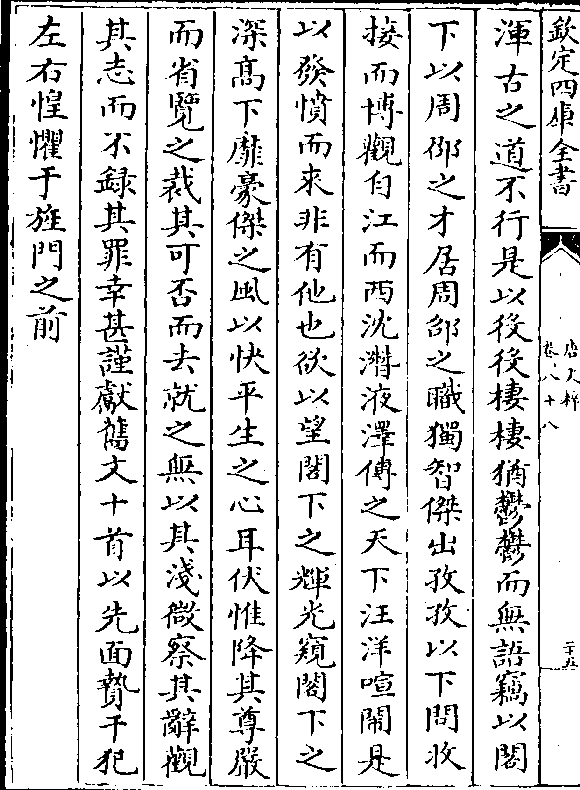 欽定四庫全書
唐文粹
卷八十八
二十五
渾古之道不行是以後後棲棲猶鬱鬱而無語竊以閣
下以周邵之才居周邵之職獨智傑出孜孜以下問收
接而博觀自江而西沈潛液澤傳之天下汪洋喧鬧是
以發憤而來非有他也欲以望閣下之輝光窺閣下之
深高下靡豪傑之風以快平生之心耳伏惟降其尊嚴
而省覽之裁其可否而去就之無以其淺微察其辭觀
其志而不録其罪幸甚謹獻舊文十首以先面贄干犯
左右惶懼于旌門之前